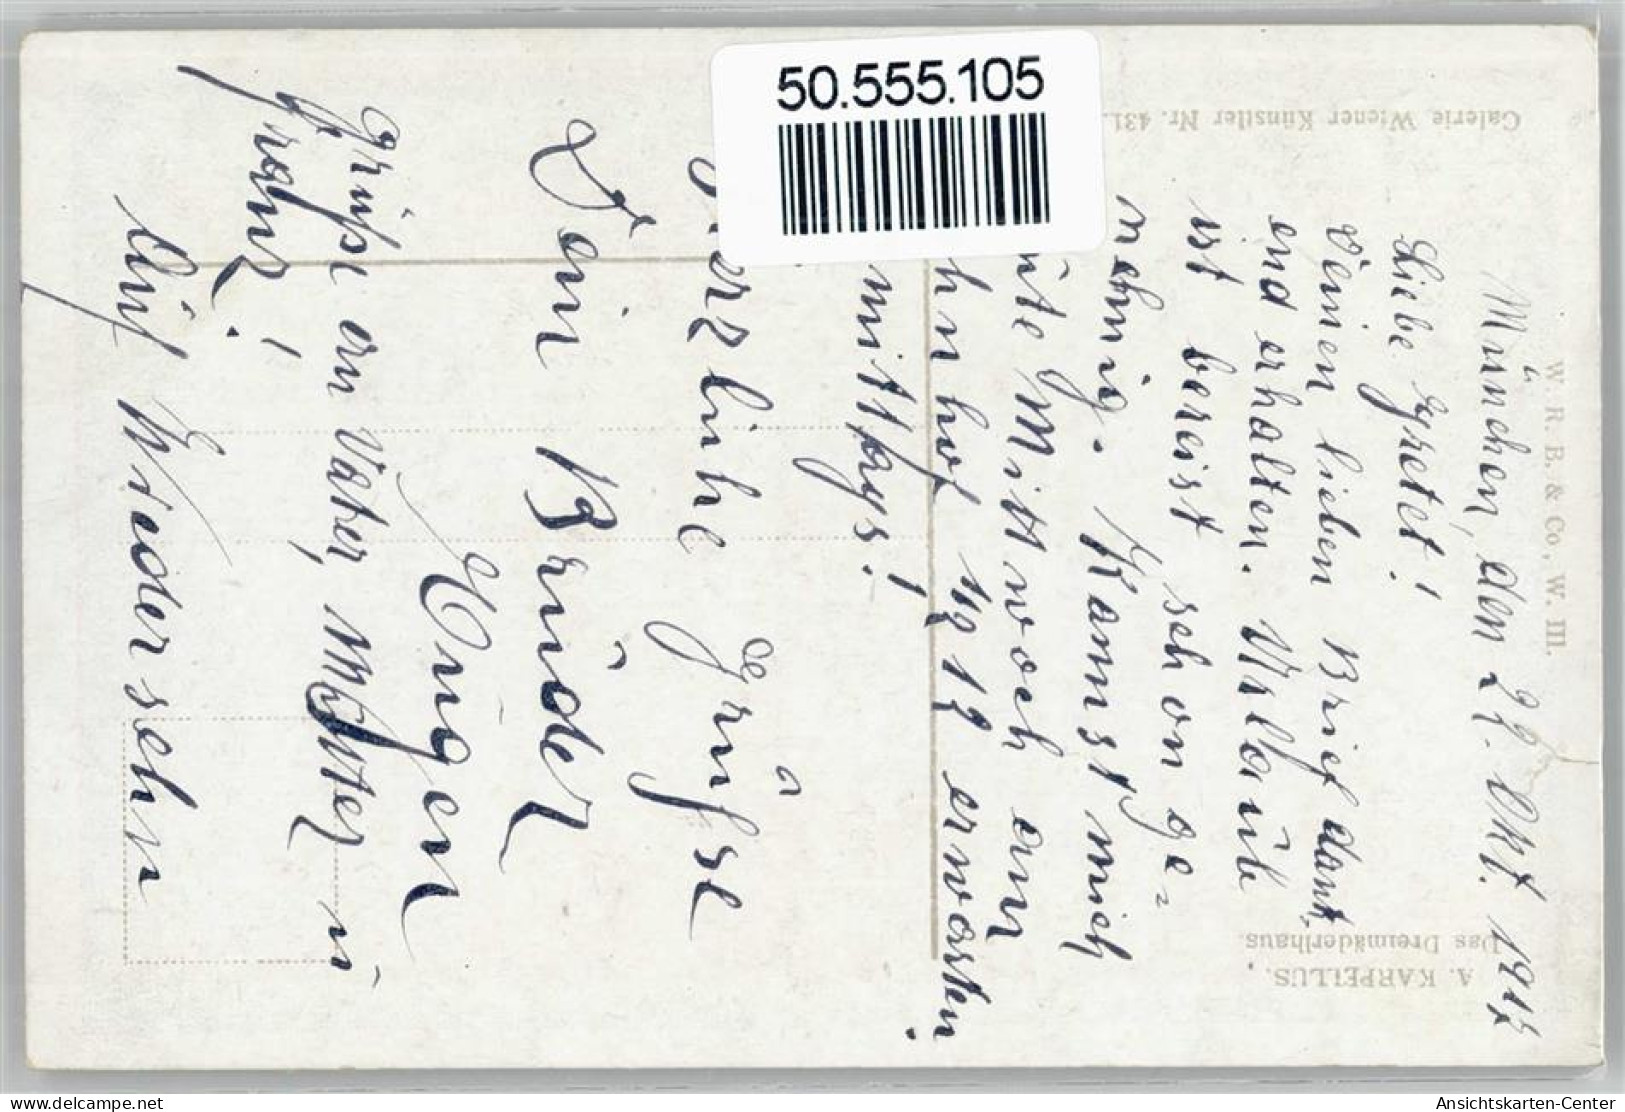 50.555.105
Galerie Wiener Künstler Nr. 431.
W. R. B. & Co., W. III.
A. KARPELLUS.
Das Dreimäderlhaus.
München, den 29. Okt. 1917
Liebe Gretel!
Deinen lieben Brief dank
end erhalten. Urlaub
ist bereist schon ge=
nehmig. Kannst mich
ute Mittwoch am
hnhof 1/2 12 erwarten
mittags!
Herzliche Grüße
Dein Bruder
Eugen
Grüße an Vater, Mutter u
Franz!
Auf Wiedersehn
Ansichtskarten-Center